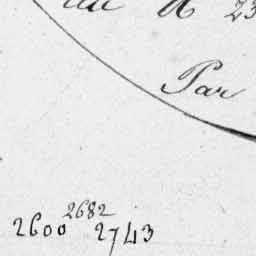 Par
2682
2600 2743